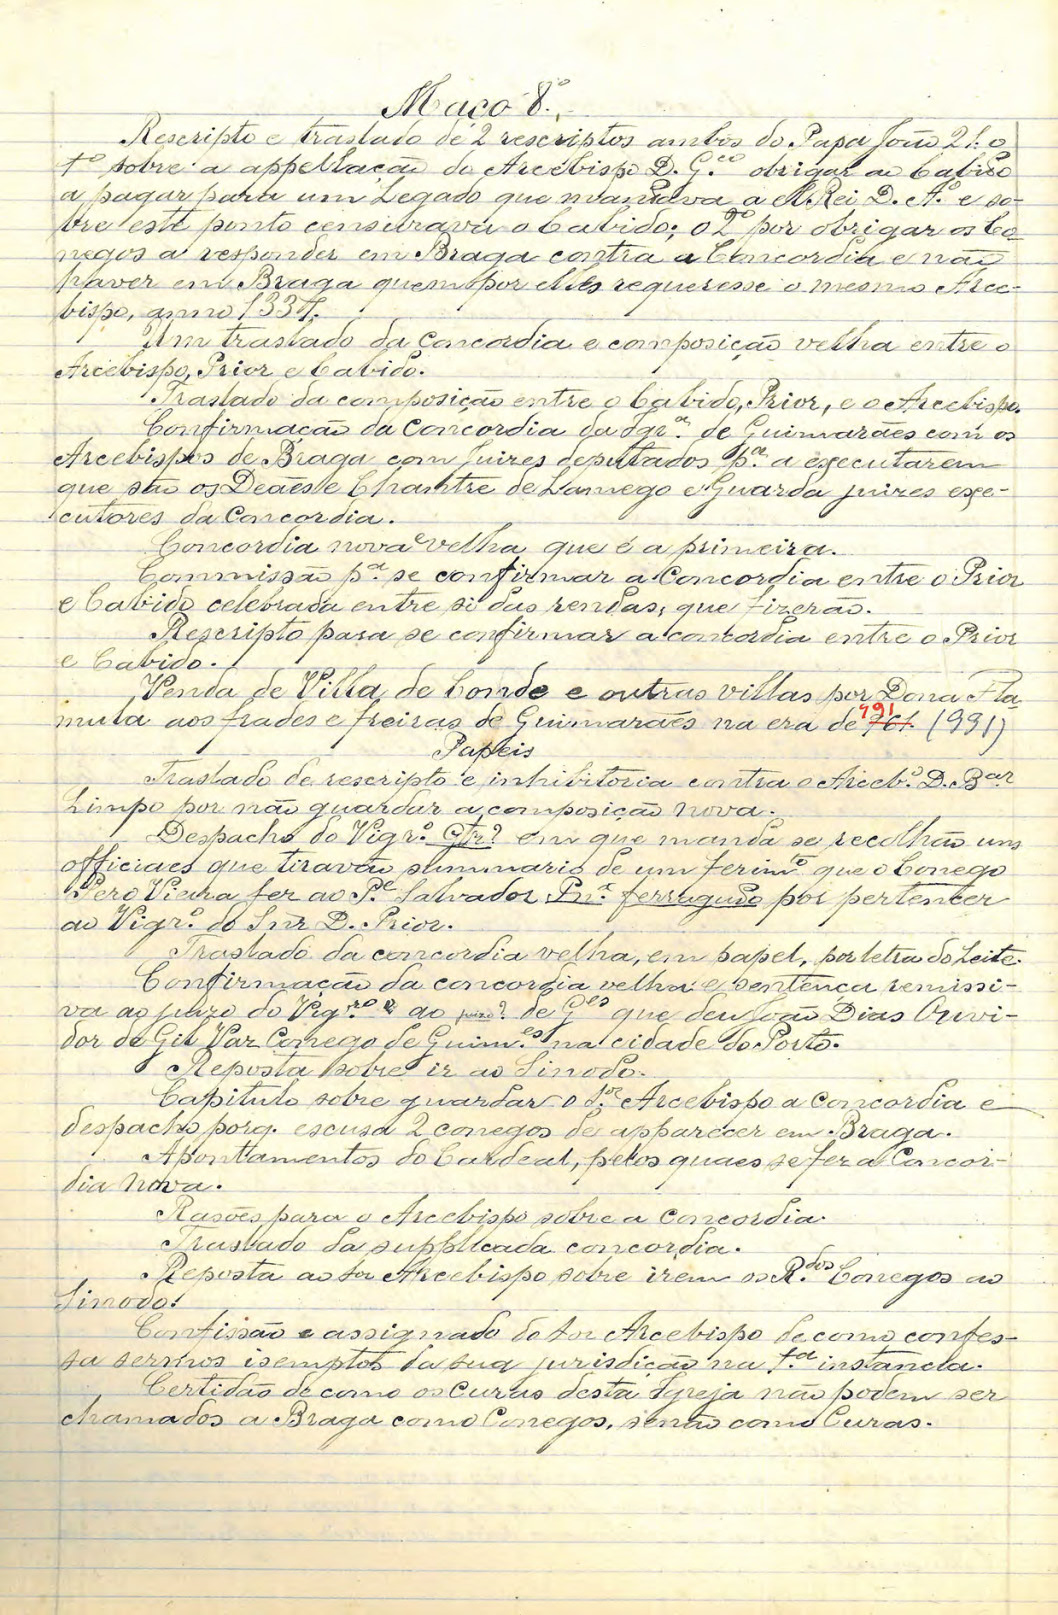 Maço 8º.
Rescripto e traslado de 2 rescriptos ambos do Papa João 21: o
1º sobre a appellação do Arcebispo D. G.ço obrigar ao Cabido
a pagar para um Legado que mandava a El-Rei D. A.º e so-
bre este ponto censurava o Cabido; o 2º por obrigar os Co
negos a responder em Braga contra a Concordia e não
haver em Braga quem por elles requeresse o mesmo Arce-
bispo, anno 1337.
Um traslado da Concordia e composição velha entre o
Arcebispo, Prior e Cabido.
Traslado da composição entre o Cabido, Prior, e o Arcebispo.
Confirmação da Concordia da Igr.ª de Guimarães com os
Arcebispos de Braga com Juizes deputados p.ª a executarem
que são os Deães e Chantre de Lamego e Guarda juizes exe-
cutores da Concordia.
Concordia nova e velha que é a primeira.
Commissão p.ª se confirmar a Concordia entre o Prior
e Cabido celebrada entre si das rendas, que fizerão.
Rescripto para se confirmar a concordia entre o Prior
e Cabido.
Venda de Villa de Conde e outras villas por Dona Fla
mula aos frades e freiras de Guimarães na era de 791 (991)
Papeis
Traslado de rescripto e inhibitoria contra o Arceb.º D. B.ar
Limpo por não guardar a composição nova.
Despacho do Vigr.º em que manda se recolhão uns
officiaes que tiravão summario de um ferim.to que o Conego
Pero Vieira fez ao P.e Salvador Pn.º ferrugudo por pertencer
ao Vigr.º do Snr D. Prior.
Traslado da concordia velha, em papel, por letra do Leite.
Confirmação da concordia velha e sentença remissi-
va ao juizo do Vigr.ro e ao juizo? de G.es que deu João Dias Ouvi-
dor de Gil Vaz Conego de Guim.es na cidade do Porto.
Reposta sobre ir ao Sinodo.
Capitulo sobre guardar o S.or Arcebispo a Concordia e
despacho porq. escusa 2 conegos de apparecer em Braga.
Apontamentos do Cardeal, pelos quaes se fez a Concor-
dia Nova.
Rasões para o Arcebispo sobre a Concordia.
Traslado da supplicada concordia.
Reposta ao Sor Arcebispo sobre irem os R.dos Conegos ao
Sinodo.
Confissão e assignado do Sor Arcebispo de como confes-
sa sermos isemptos da sua jurisdição na 1.ª instancia.
Certidão de como os Curas desta Igreja não podem ser
chamados a Braga como Conegos, senão como Curas.